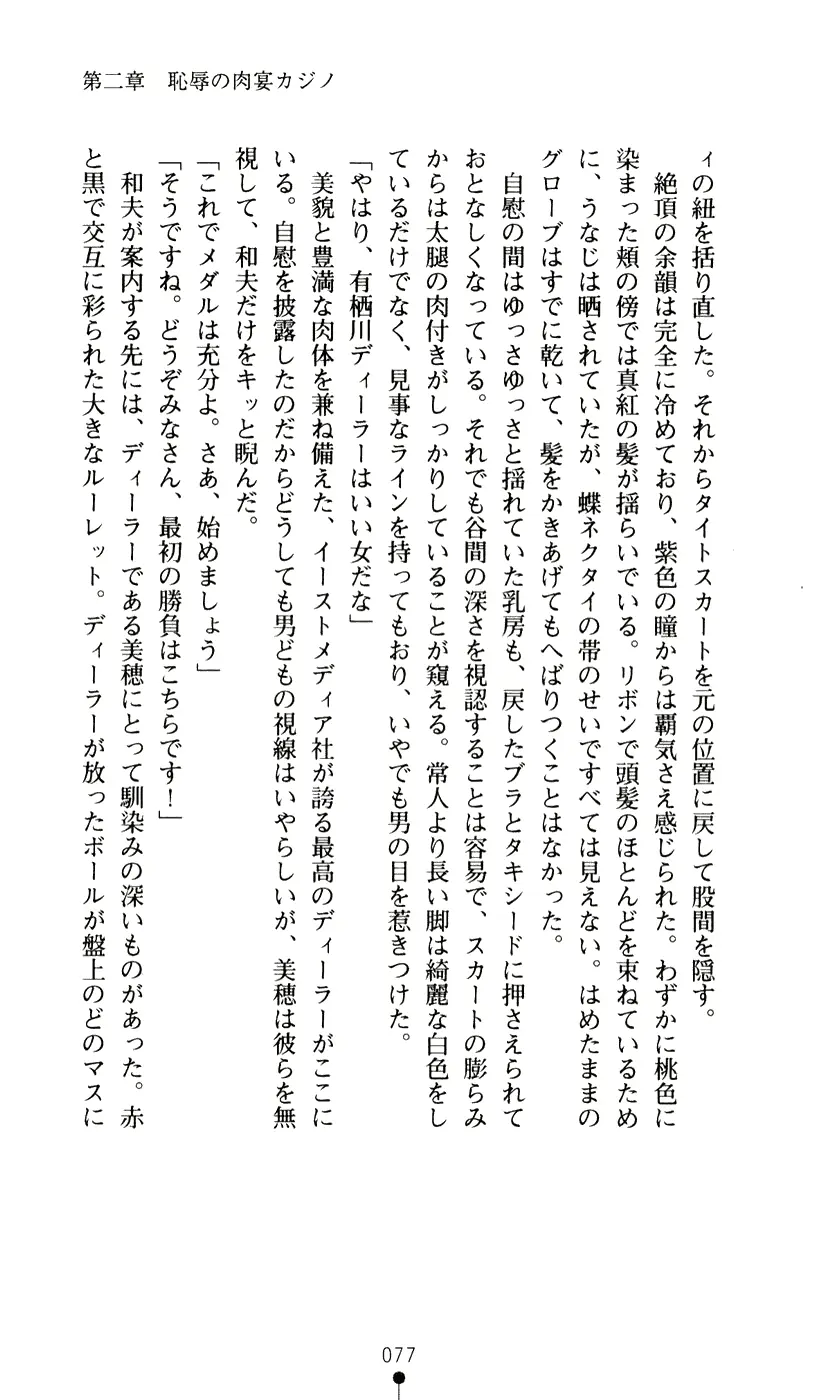 第二章　恥辱の肉宴カジノ
ィの紐を括り直した。それからタイトスカートを元の位置に戻して股間を隠す。
　絶頂の余韻は完全に冷めており、紫色の瞳からは覇気さえ感じられた。わずかに桃色に
染まった頬の傍では真紅の髪が揺らいでいる。リボンで頭髪のほとんどを束ねているため
に、うなじは晒されていたが、蝶ネクタイの帯のせいですべては見えない。はめたままの
グローブはすでに乾いて、髪をかきあげてもへばりつくことはなかった。
　自慰の間はゆっさゆっさと揺れていた乳房も、戻したブラとタキシードに押さえられて
おとなしくなっている。それでも谷間の深さを視認することは容易で、スカートの膨らみ
からは太腿の肉付きがしっかりしていることが窺える。常人より長い脚は綺麗な白色をし
ているだけでなく、見事なラインを持ってもおり、いやでも男の目を惹きつけた。
「やはり、有栖川ディーラーはいい女だな」
　美貌と豊満な肉体を兼ね備えた、イーストメディア社が誇る最高のディーラーがここに
いる。自慰を披露したのだからどうしても男どもの視線はいやらしいが、美穂は彼らを無
視して、和夫だけをキッと睨んだ。
「これでメダルは充分よ。さあ、始めましょう」
「そうですね。どうぞみなさん、最初の勝負はこちらです！」
　和夫が案内する先には、ディーラーである美穂にとって馴染みの深いものがあった。赤
と黒で交互に彩られた大きなルーレット。ディーラーが放ったボールが盤上のどのマスに
077